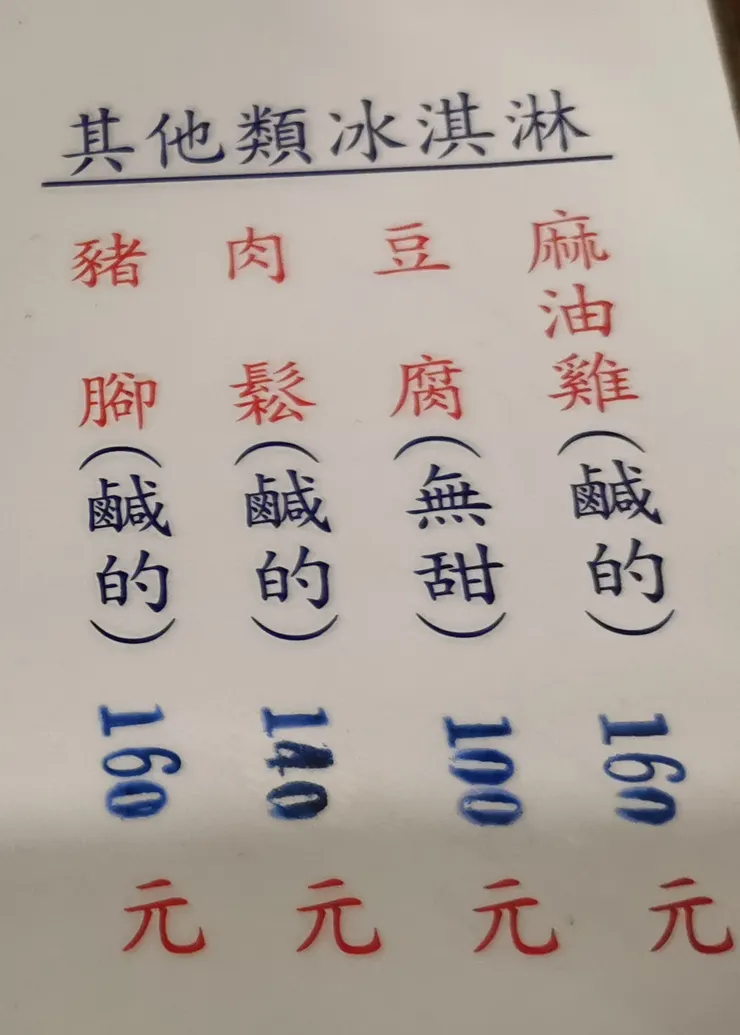 其他類冰淇淋
麻油雞(鹹的)160元
豆腐(無甜)100元
肉鬆(鹹的)140元
豬腳(鹹的)160元